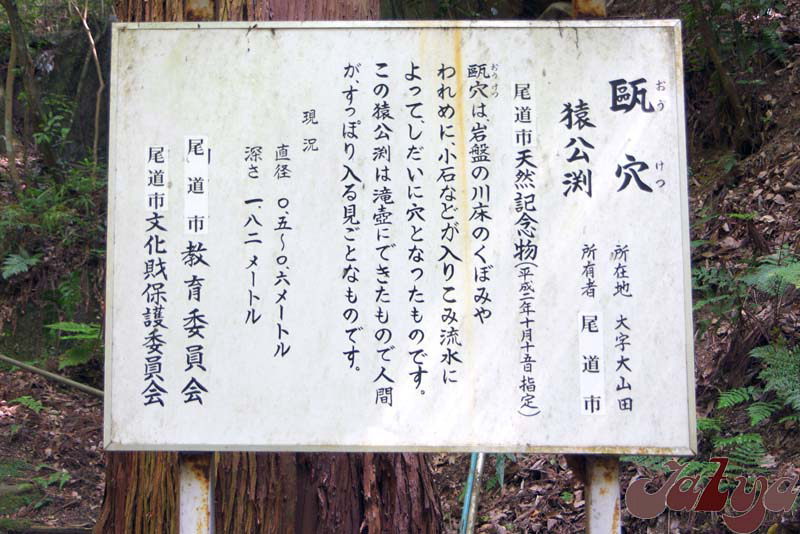 甌穴
おう けつ
猿公渕
所在地 大字大山田
所有者 尾道市
尾道市天然記念物(平成二年十月十五日指定)
おうけつ
甌穴は、岩盤の川床のくぼみや
われめに、小石などが入りこみ流水に
よって、しだいに穴となったものです。
この猿公渕は滝壺にできたもので人間
が、すっぽり入る見ごとなものです。
現況
直径 〇.五〜〇.六メートル
深さ 一.八二メートル
尾道市教育委員会
尾道市文化財保護委員会
Ja2ya